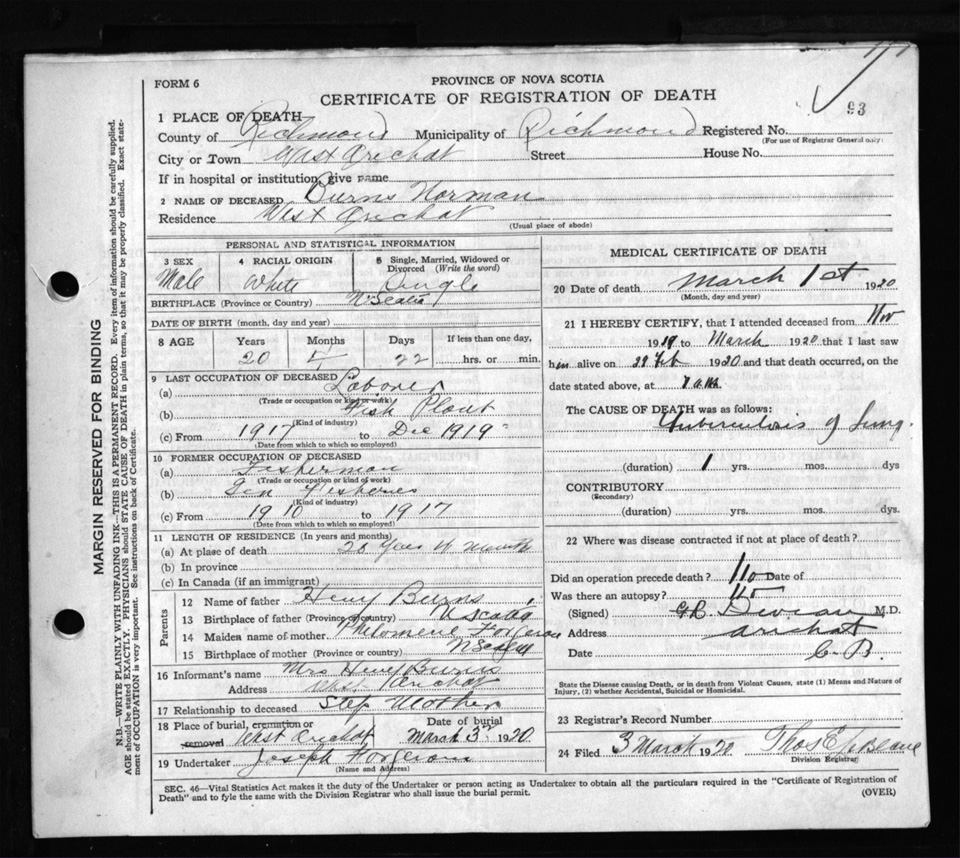 FORM 6
PROVINCE OF NOVA SCOTIA
CERTIFICATE OF REGISTRATION OF DEATH
93
1 PLACE OF DEATH
County of Richmond Municipality of Richmond Registered No.
(For use of Registrar General only)
City or Town West Arichat Street House No.
If in hospital or institution, give name
2 NAME OF DECEASED Burns Norman
Residence West Arichat
(Usual place of abode)
PERSONAL AND STATISTICAL INFORMATION
3 SEX Male
4 RACIAL ORIGIN White
5 Single, Married, Widowed or Divorced (Write the word) Single
BIRTHPLACE (Province or Country) N Scotia
DATE OF BIRTH (month, day and year)
8 AGE Years 20 Months Days 22 If less than one day, hrs. or min.
9 LAST OCCUPATION OF DECEASED
(a) Laborer
(Trade or occupation or kind of work)
(b) Fish Plant
(Kind of industry)
(c) From 1917 to Dec 1919
(Date from which to which so employed)
10 FORMER OCCUPATION OF DECEASED
(a) Fisherman
(Trade or occupation or kind of work)
(b) Gen Fisheries
(Kind of industry)
(c) From 1910 to 1917
(Date from which to which so employed)
11 LENGTH OF RESIDENCE (In years and months)
(a) At place of death 20 Years month
(b) In province
(c) In Canada (if an immigrant)
Parents
12 Name of father Henry Burns
13 Birthplace of father (Province or country) N Scotia
14 Maiden name of mother Philomene Forgeron
15 Birthplace of mother (Province or country) N Scotia
16 Informant's name Mrs Henry Burns
Address West Arichat
17 Relationship to deceased Step Mother
18 Place of burial, cremation or removal West Arichat Date of burial March 3rd 1920
19 Undertaker Joseph Forgeron
(Name and Address)
MEDICAL CERTIFICATE OF DEATH
20 Date of death March 1st 1920
(Month, day and year)
21 I HEREBY CERTIFY, that I attended deceased from Nov
1919 to March 1920 that I last saw
him alive on Feb 1920 and that death occurred, on the
date stated above, at 7 a.m.
The CAUSE OF DEATH was as follows:
Tuberculosis of Lung.
(duration) 1 yrs. mos. dys
CONTRIBUTORY
(Secondary)
(duration) yrs. mos. dys.
22 Where was disease contracted if not at place of death?
Did an operation precede death? no Date of
Was there an autopsy? no
(Signed) M.D.
Address Arichat
Date C. B.
State the Disease causing Death, or in death from Violent Causes, state (1) Means and Nature of
Injury, (2) whether Accidental, Suicidal or Homicidal.
23 Registrar's Record Number
24 Filed 3 March 1920 Thos E LeBlanc
Division Registrar
SEC. 46—Vital Statistics Act makes it the duty of the Undertaker or person acting as Undertaker to obtain all the particulars required in the "Certificate of Registration of
Death" and to fyle the same with the Division Registrar who shall issue the burial permit.
(OVER)
MARGIN RESERVED FOR BINDING
N.B.—WRITE PLAINLY WITH UNFADING INK—THIS IS A PERMANENT RECORD. Every item of information should be carefully supplied.
AGE should be stated EXACTLY. PHYSICIANS should STATE CAUSE OF DEATH in plain terms, so that it may be properly classified. Exact state-
ment of OCCUPATION is very important. See instructions on back of Certificate.